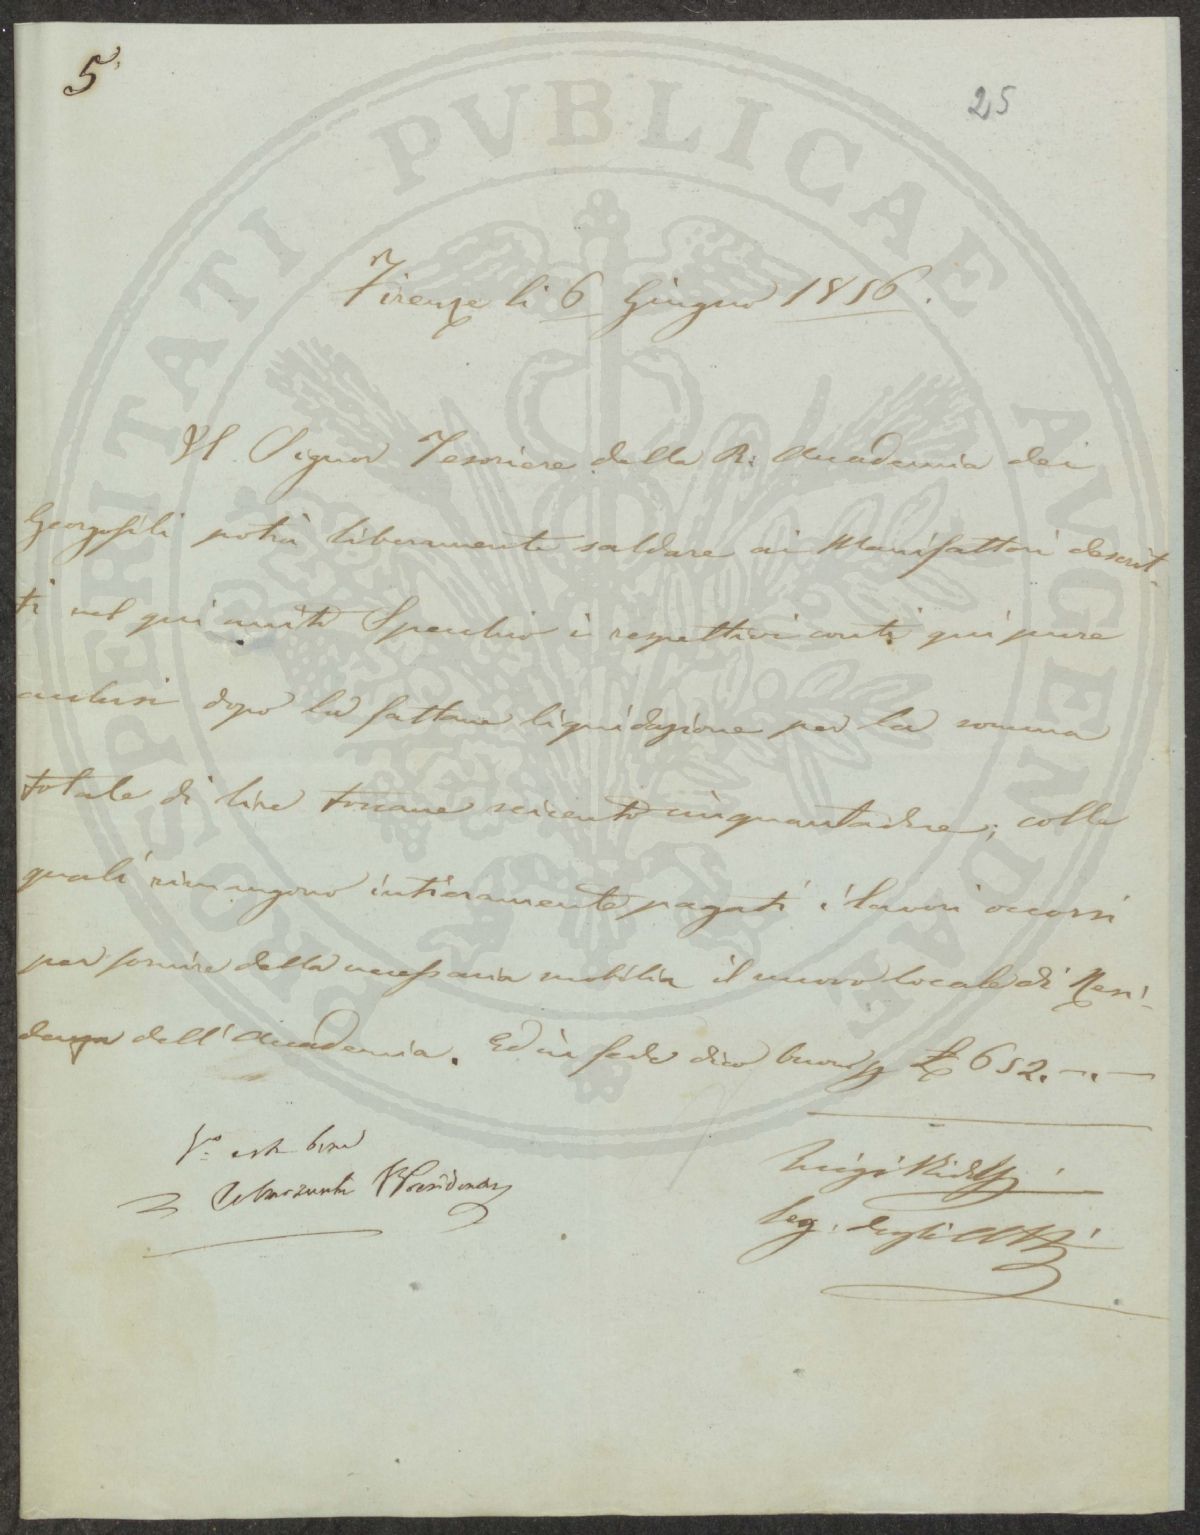 5.
25
PROSPERITATI PVBLICAE AVGENDAE
Firenze li 6 Giugno 1856.
Il Signor Tesoriere della R. Accademia dei
Georgofili potrà liberamente saldare ai Manifattori descrit-
ti nel qui unito Specchio i respettivi conti qui pure
acclusi dopo la fattane liquidazione per la somma
totale di lire toscane seicento cinquantadue; colle
quali rimangono intieramente pagati i lavori occorsi
per fornire della necessaria mobilia il nuovo locale di Resi-
denza dell'Accademia. Ed in fede dico buono p £ 652.-.-
V.° sta bene
Presidente
Luigi Ridolfi
Seg. degli Atti